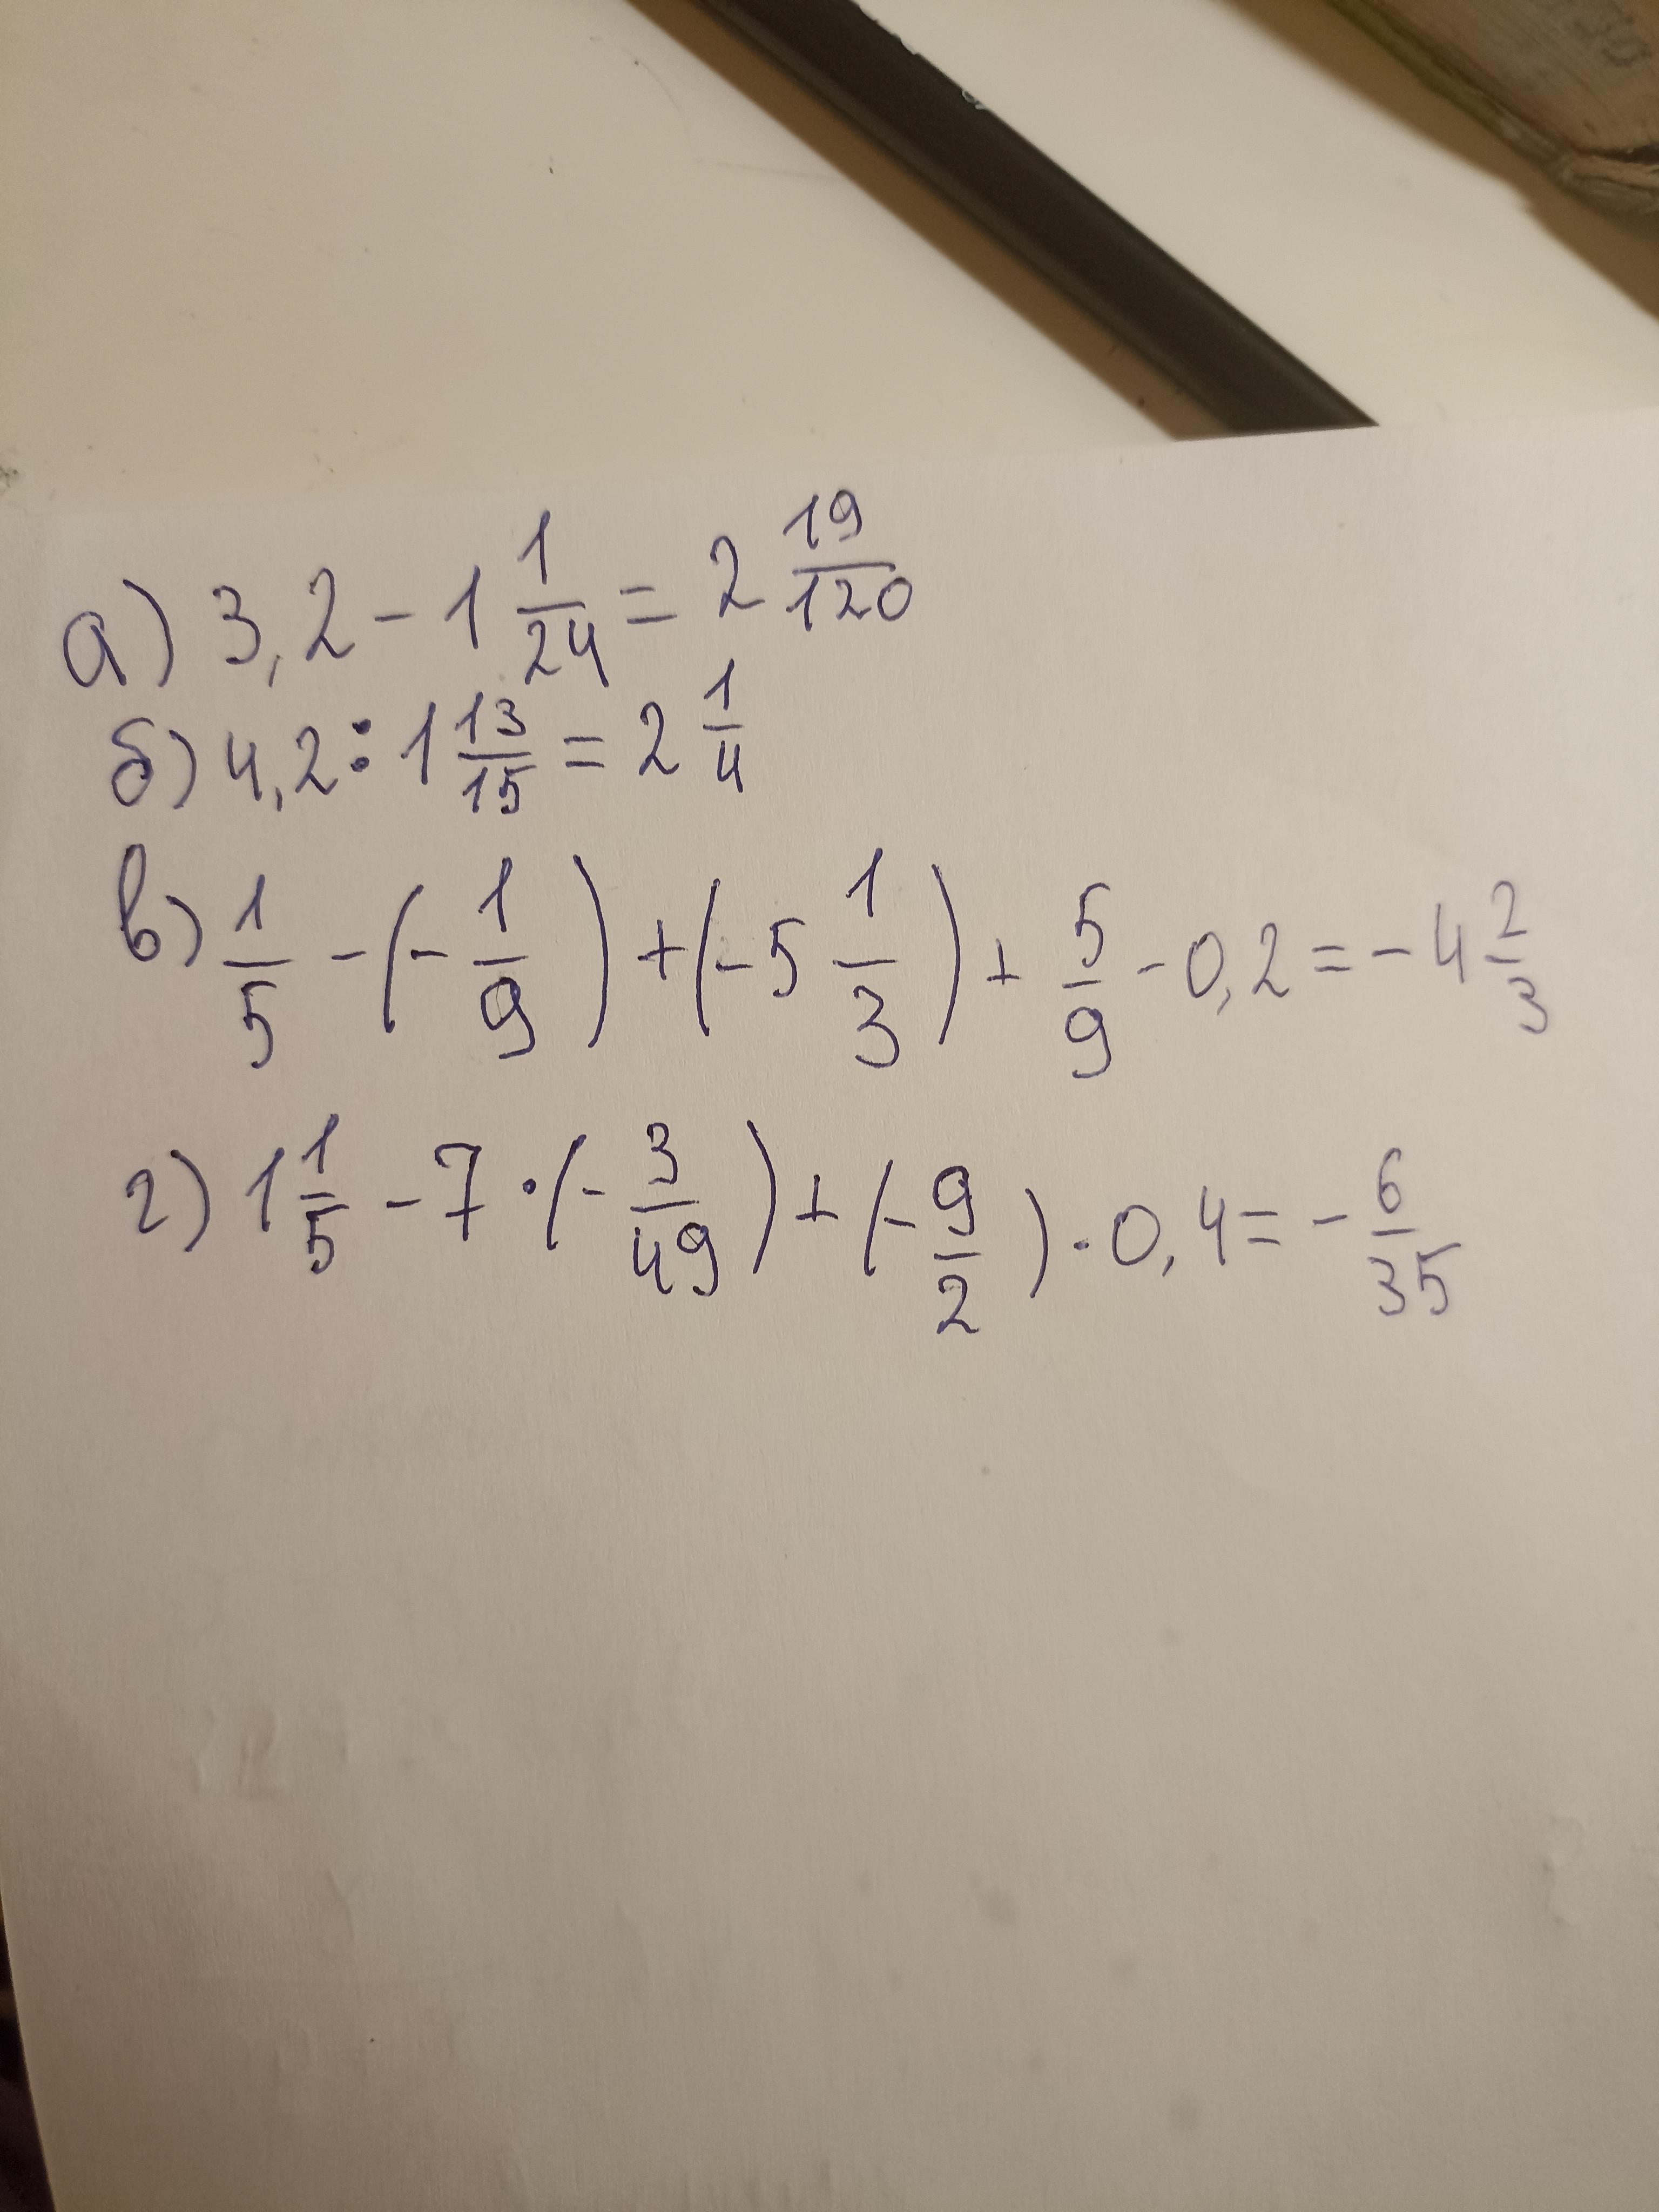 а) 3,2 - 1 1/24 = 2 19/120
б) 4,2 : 1 13/15 = 2 1/4
в) 1/5 - (- 1/9) + (-5 1/3) + 5/9 - 0,2 = -4 2/3
г) 1 1/5 - 7 · (- 3/49) + (- 9/2) · 0,4 = - 6/35